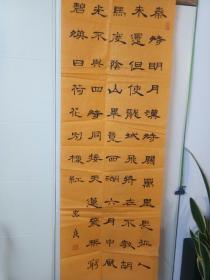 秦時明月漢時關萬里長征人
未還但使龍城飛將在不教胡
馬度陰山畢竟西湖六月中風
光不與四時同接天蓮葉無窮
碧映日荷花別樣紅